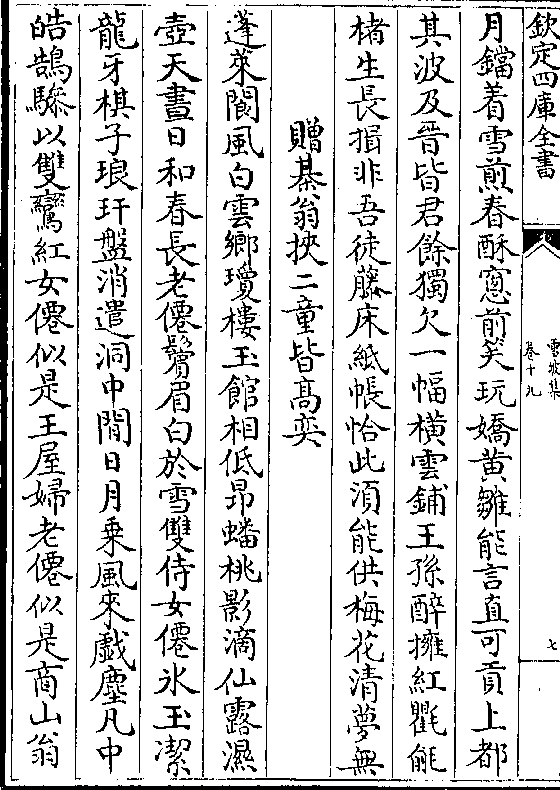 欽定四庫全書
雪坡集
卷十九
七
月鐺着雪煎春酥窻前笑玩嬌黄雛能言直可貢上都
其波及晋皆君餘獨欠一幅橫雲鋪王孫醉擁紅氍毹
楮生長揖非吾徒藤床紙帳恰此湏能供梅花清夢無
贈棊翁挾二童皆髙奕
蓬萊閬風白雲鄉瓊樓玉館相低昂蟠桃影滴仙露濕
壺天晝日和春長老僊鬢眉白於雪雙侍女僊氷玉潔
龍牙棋子琅玕盤消遣洞中閒日月乗風來戲塵凡中
皓鵠驂以雙鸞紅女僊似是王屋婦老僊似是商山翁